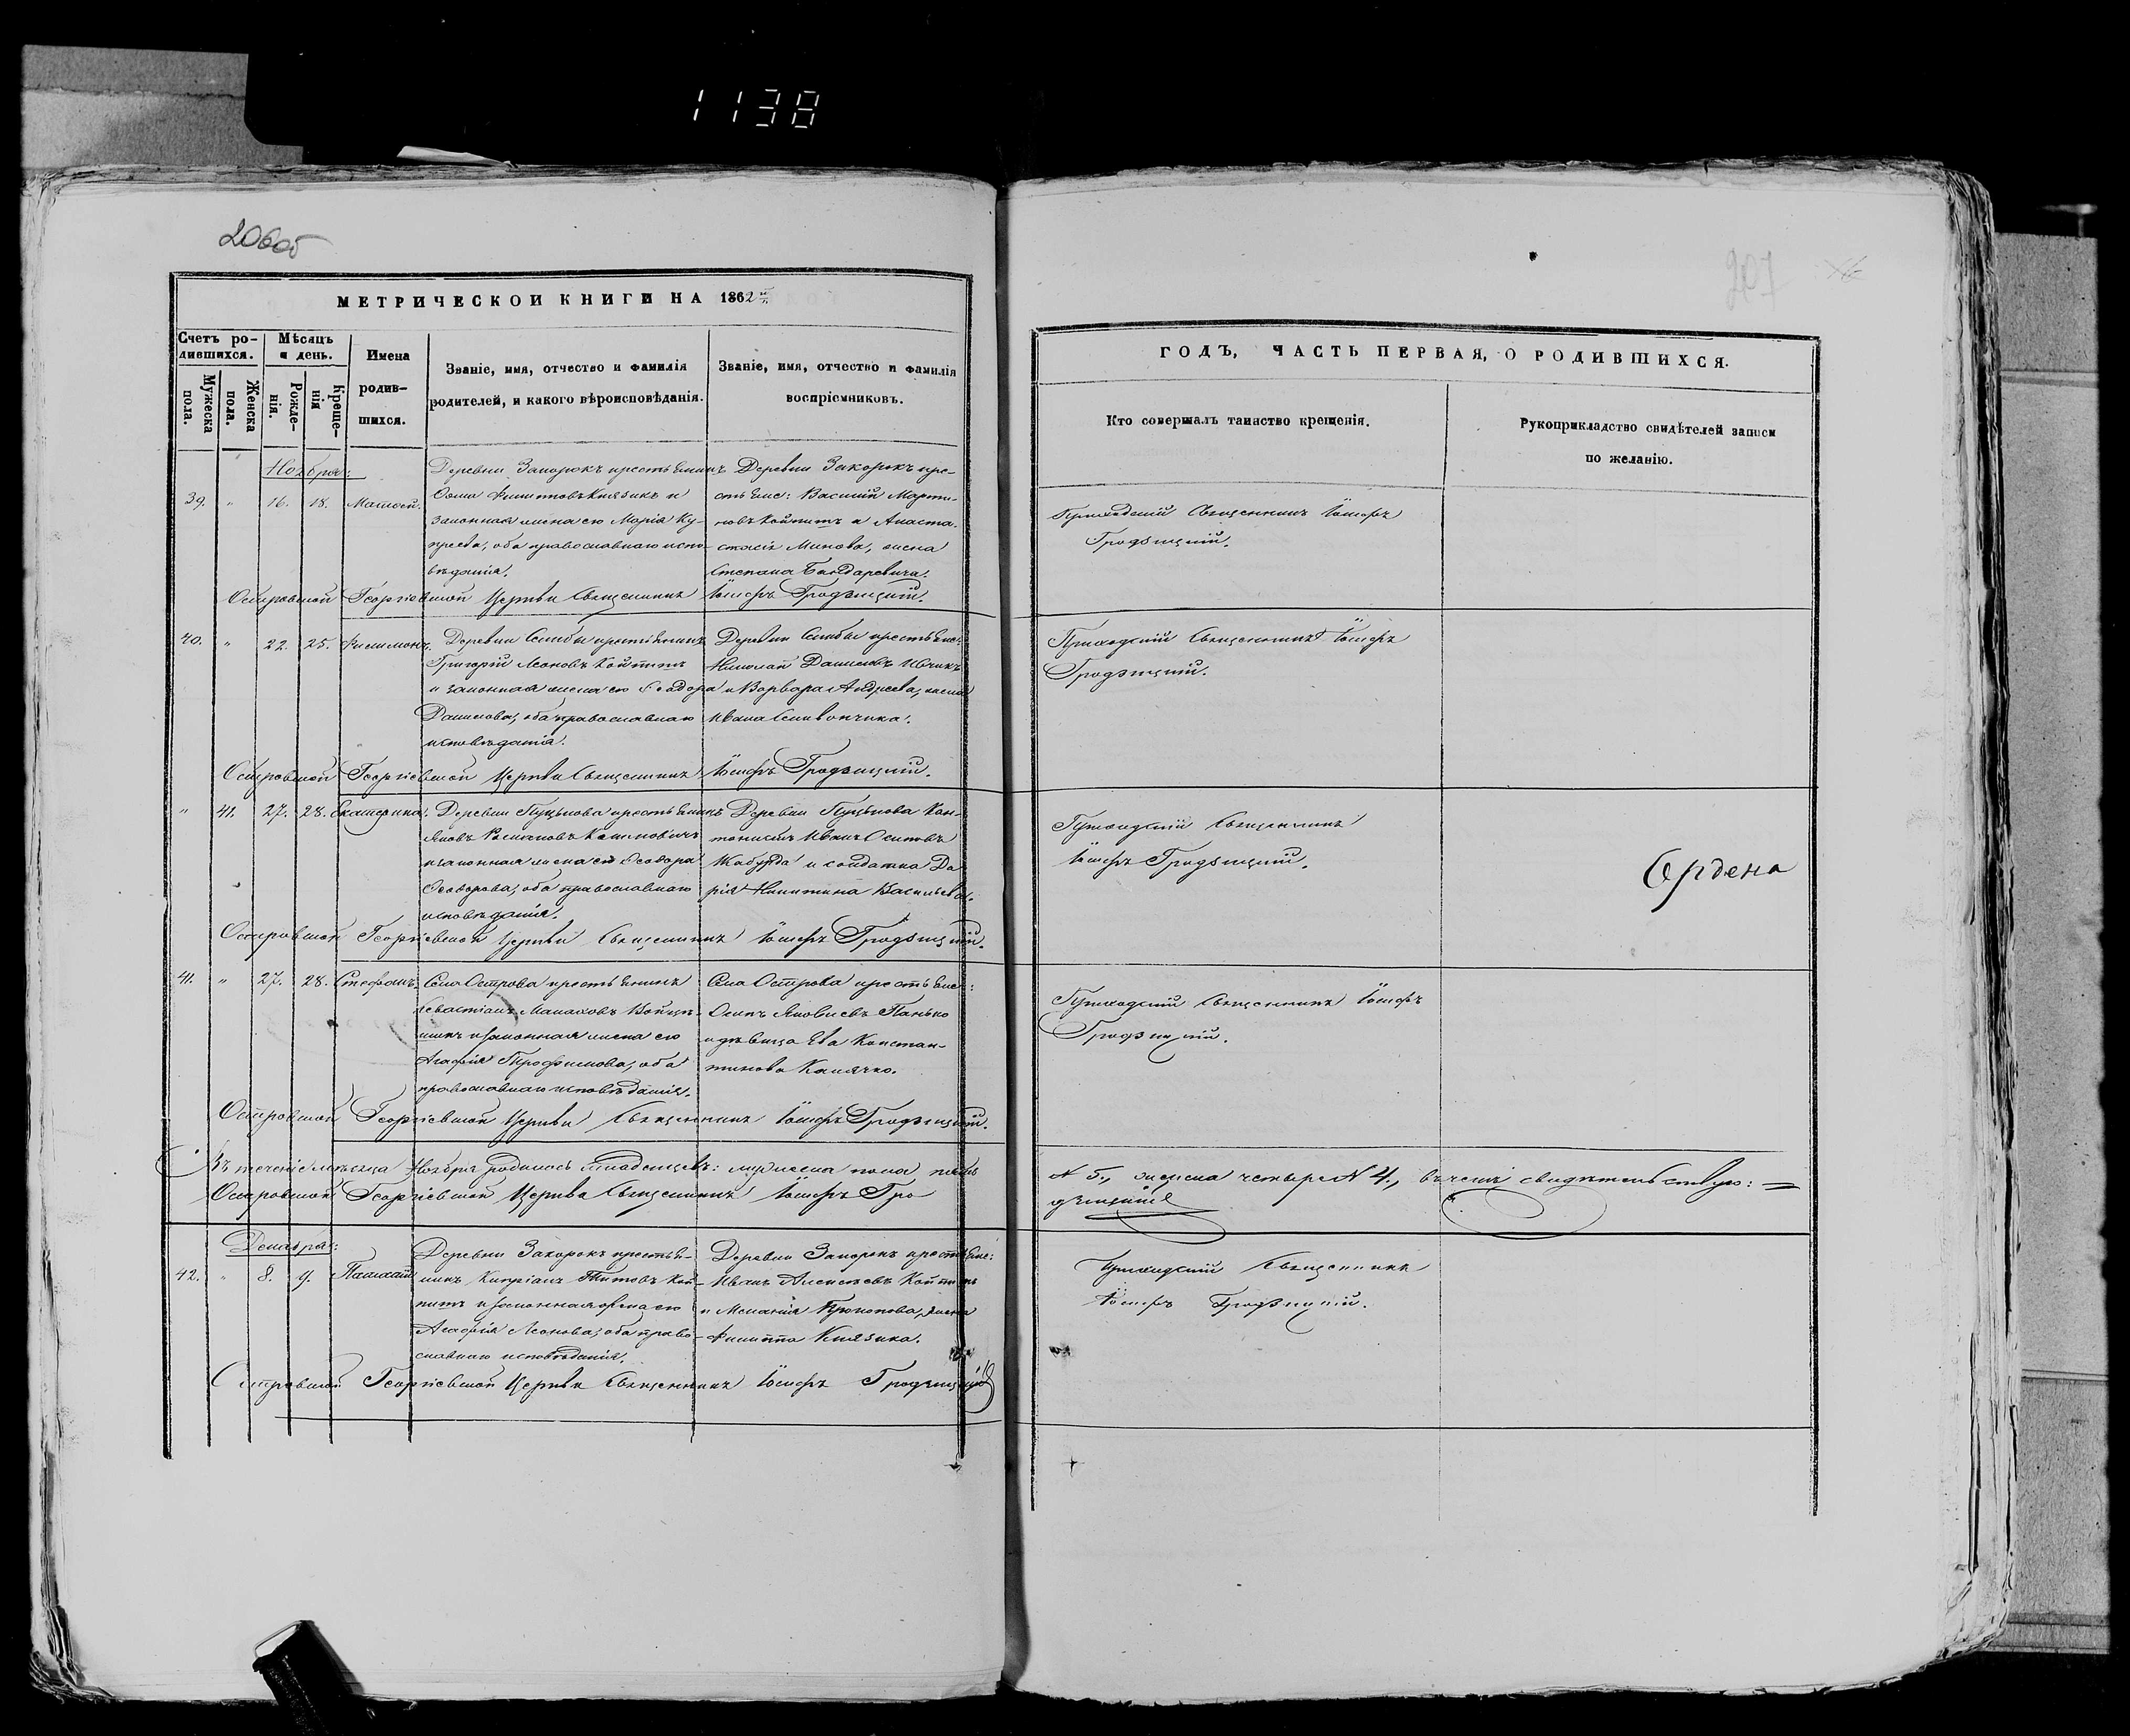 1138
206об
207
МЕТРИЧЕСКОЙ КНИГИ НА 1862й
Счетъ ро-
дившихся.
Мѣсяцъ
и день.
Мужеска
пола.
Женска
пола.
Рожде-
нія.
Креще-
нія
Имена
родив-
шихся.
Званіе, имя, отчество и фамилія
родителей, и какого вѣроисповѣданія.
Званіе, имя, отчество и фамилія
воспріемниковъ.
Ноября:
39. " 16. 18. Матѳей.
Деревни Закорокъ крестьянинъ
Ѳома Филиповъ Князикъ и
законная жена его Марія Ку-
преева, оба православнаго испо-
вѣданія.
Деревни Закорокъ кре-
стьяне: Василій Марти-
новъ Койпитъ и Анаста-
сія Минова, жена
Степана Бондаревича.
Островской Георгіевской Церкви Священникъ Іосифъ Гродзицкій.
40. " 22. 25. Филимонъ.
Деревни крестьянинъ
Григорій Леоновъ Койпитъ
и законная жена его Ѳеодора
Данилова, оба православнаго
исповѣданія.
Деревни крестьяне:
Николай Даниловъ Ивчикъ
и Варвара Андреева, жена
Ивана
Островской Георгіевской Церкви Священникъ Іосифъ Гродзицкій.
" 41. 27. 28. Екатерина.
Деревни крестьянинъ
Яковъ
и законная жена его Ѳеодора
Ѳеодорова, оба православнаго
исповѣданія.
Деревни Кан-
тонистъ Иванъ Осиповъ
Жабурда и солдатка Да-
рія Никитина Васильева.
Островской Георгіевской Церкви Священникъ Іосифъ Гродзицкій.
41. " 27. 28. Стефанъ.
Села Острова крестьянинъ
Севастіанъ
и законная жена его
Агафія Трофимова, оба
православнаго исповѣданія.
Села Острова крестьяне:
Осипъ Яковлевъ Панько
и дѣвица Ева Констан-
тинова
Островской Георгіевской Церкви Священникъ Іосифъ Гродзицкій.
Въ теченіе мѣсяца Ноября родилось младенцевъ: мужеска пола пять
Островской Георгіевской Церкви Священникъ Іосифъ Гро-
Декабря:
42. " 8. 9.
Деревни Закорокъ крестья-
нинъ Кипріанъ Титовъ Кой-
питъ и законная жена его
Агафія Леонова, оба право-
славнаго исповѣданія.
Деревни Закорокъ крестьяне:
Иванъ Алексѣевъ Койпитъ
и Меланія Прокопова, жена
Филиппа Князика.
Островской Георгіевской Церкви Священникъ Іосифъ Гродзицкій
ГОДЪ, ЧАСТЬ ПЕРВАЯ, О РОДИВШИХСЯ.
Кто совершалъ таинство крещенія.
Рукоприкладство свидѣтелей записи
по желанію.
Приходскій Священникъ Іосифъ
Гродзицкій.
Приходскій Священникъ Іосифъ
Гродзицкій.
Приходскій Священникъ
Іосифъ Гродзицкій.
Ордена
Приходскій Священникъ Іосифъ
Гродзицкій.
№ 5., женска четыре № 4., въ чемъ свидѣтельствую:
дзицкій
Приходскій Священникъ
Іосифъ Гродзицкій.